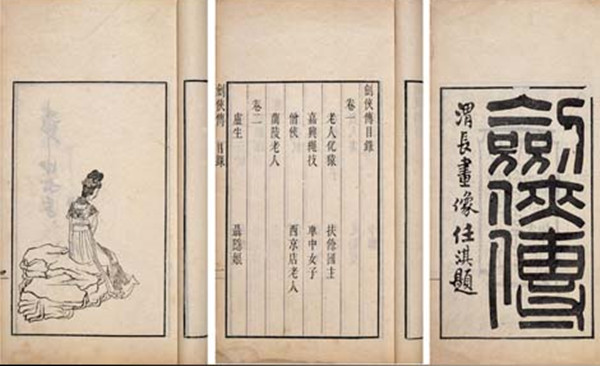 劍俠傳
渭長畫像任淇題
劍俠傳目錄
卷一
老人化猿 扶餘國主
嘉興繩技 車中女子
僧俠 西京店老人
卷二
蘭陵老人
盧生 聶隱娘
劍俠傳 目錄